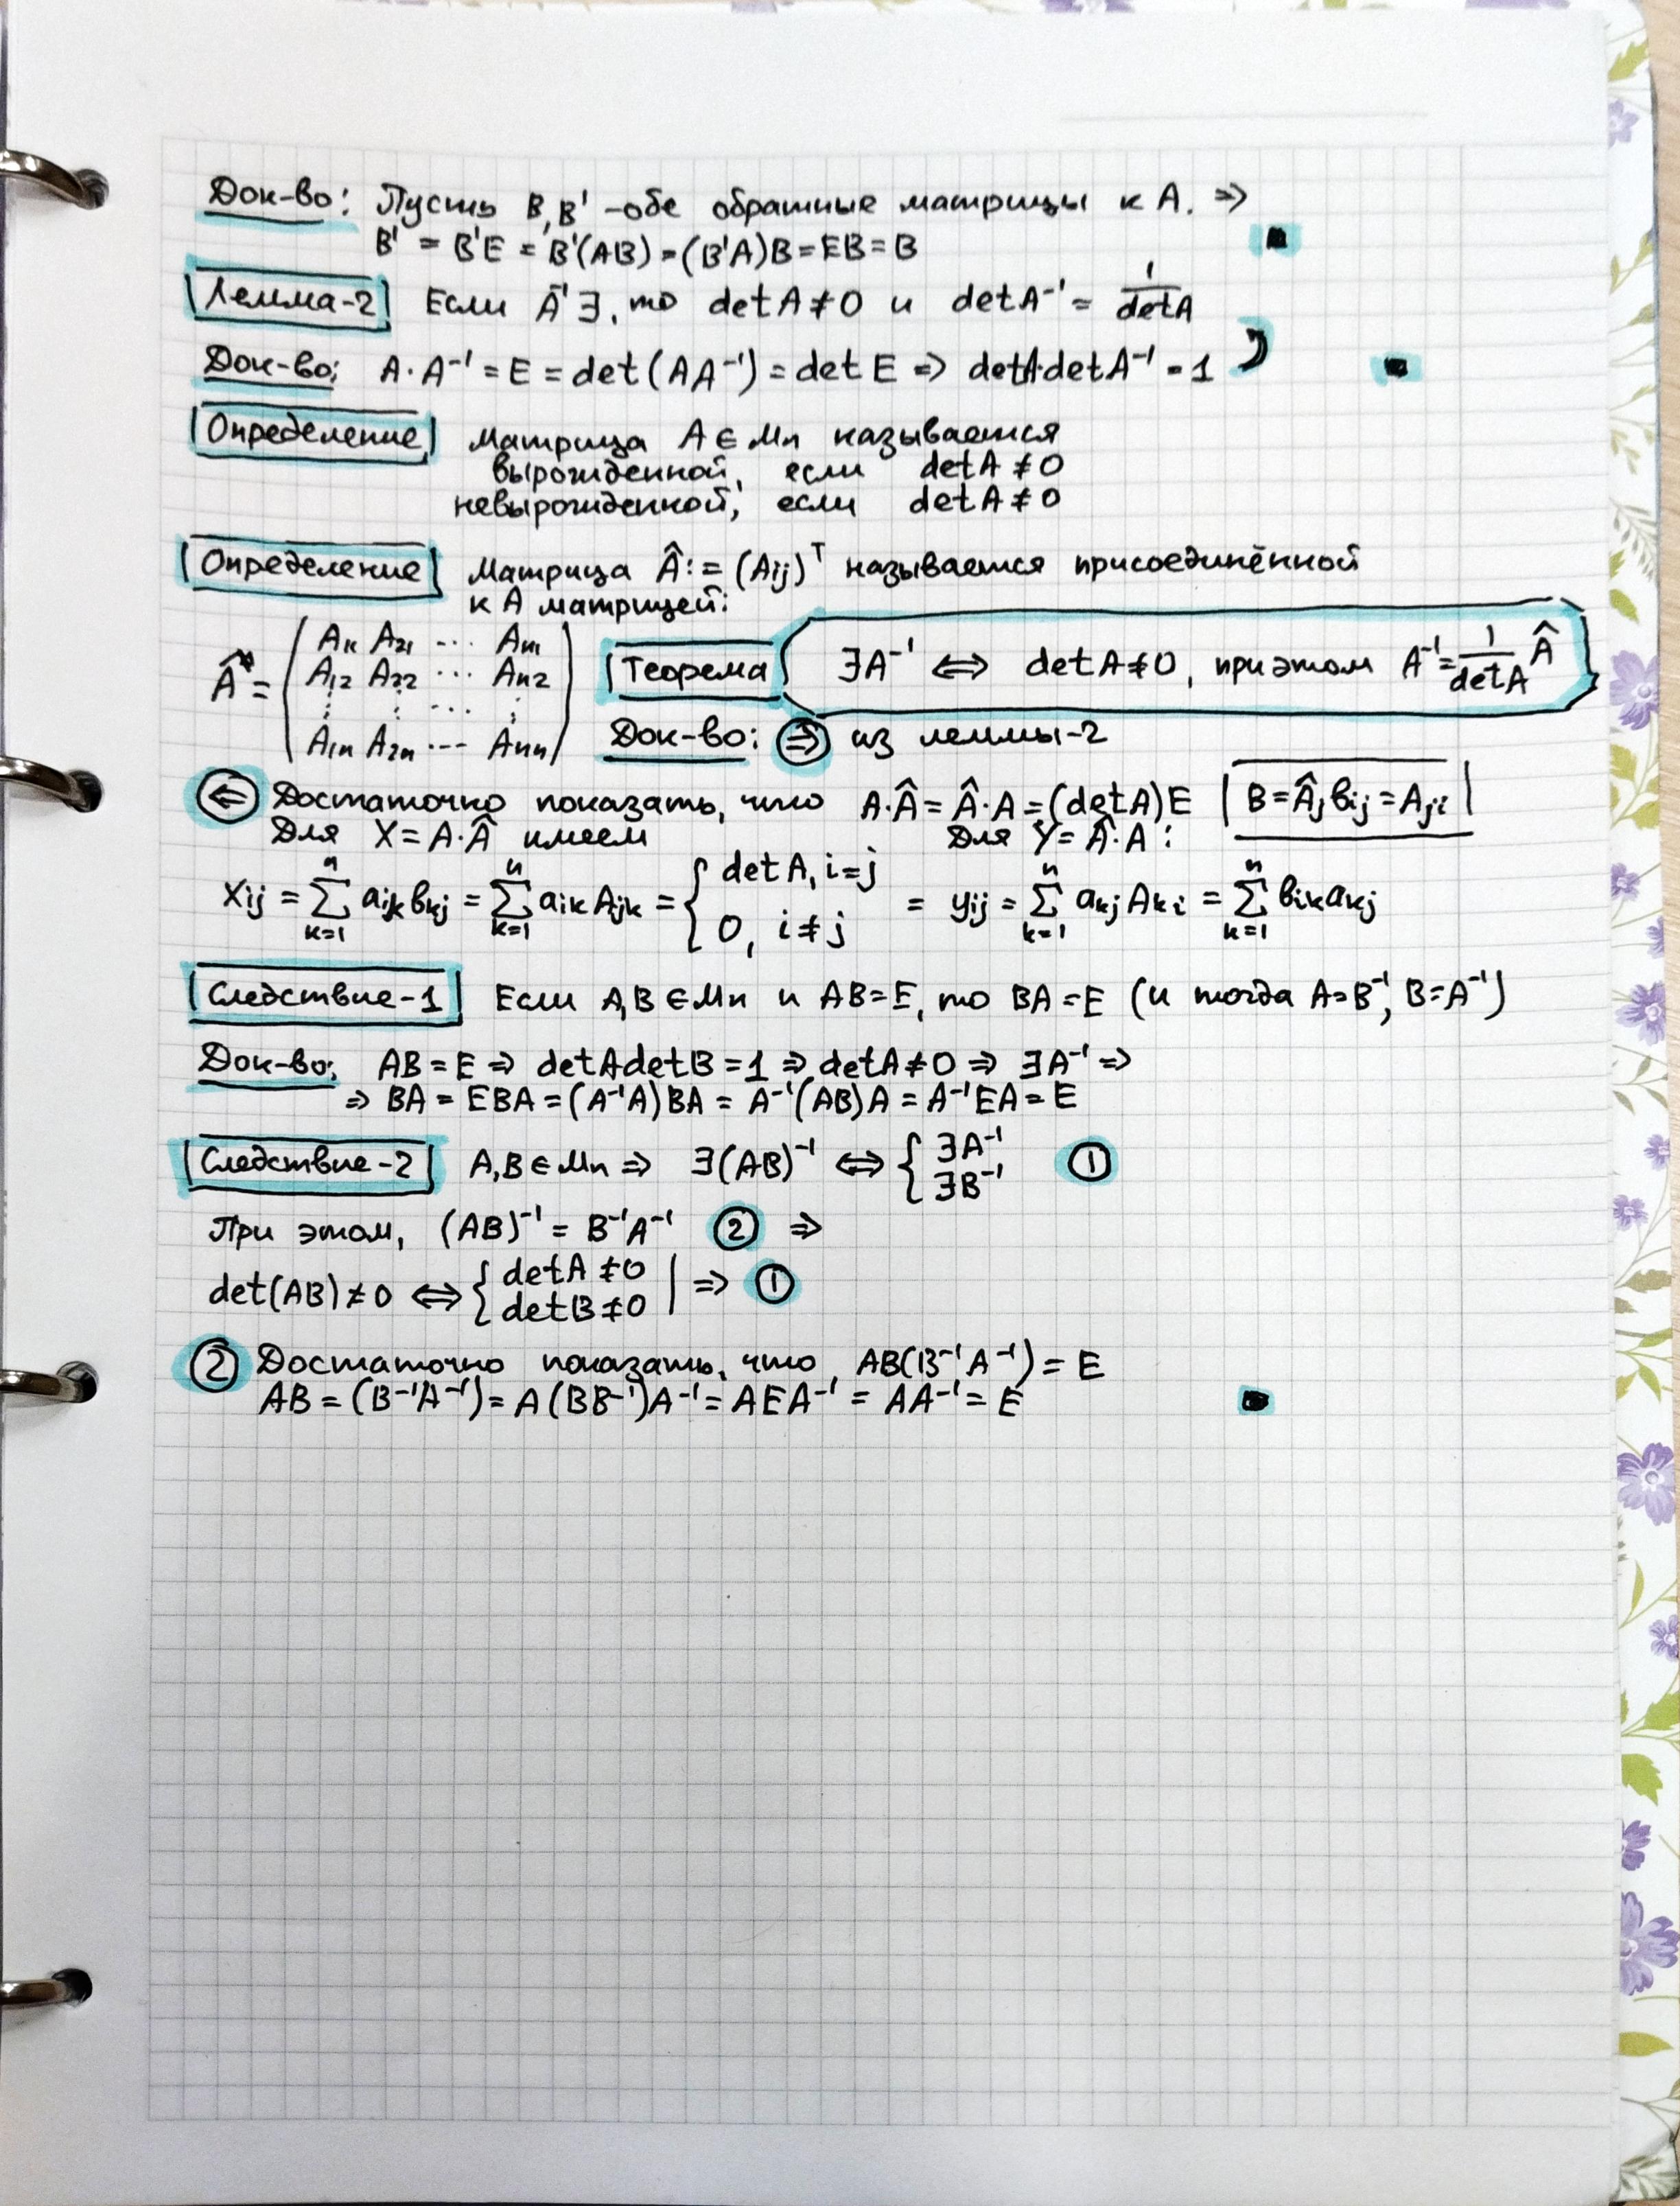 Док-во: Пусть B, B' - обе обратные матрицы к A. ⇒
B' = B'E = B'(AB) = (B'A)B = EB = B ■
Лемма-2 Если A⁻¹ ∃, то detA ≠ 0 и detA⁻¹ = 1/detA
Док-во: A·A⁻¹ = E = det(AA⁻¹) = det E ⇒ detA·detA⁻¹ = 1 ■
Определение Матрица A ∈ Mn называется
вырожденной, если detA ≠ 0
невырожденной, если detA ≠ 0
Определение Матрица Â := (Aij)ᵀ называется присоединённой
к A матрицей:
Â = ( A₁₁ A₂₁ ... Aₙ₁
A₁₂ A₂₂ ... Aₙ₂
⋮ ⋮ ... ⋮
A₁ₙ A₂ₙ ... Aₙₙ )
Теорема ∃A⁻¹ ⇔ detA ≠ 0, при этом A⁻¹ = 1/detA Â
Док-во: ⇒ из леммы-2
⇐ Достаточно показать, что A·Â = Â·A = (detA)E | B = Â, bij = Aji |
Для X = A·Â имеем Для Y = Â·A:
Xij = ∑ₖ₌₁ⁿ aik bkj = ∑ₖ₌₁ⁿ aik Ajk = { detA, i=j 0, i≠j = yij = ∑ₖ₌₁ⁿ akj Aki = ∑ₖ₌₁ⁿ bik akj
Следствие-1 Если A,B ∈ Mn и AB = E, то BA = E (и тогда A = B⁻¹, B = A⁻¹)
Док-во: AB = E ⇒ detAdetB = 1 ⇒ detA ≠ 0 ⇒ ∃A⁻¹ ⇒
⇒ BA = EBA = (A⁻¹A)BA = A⁻¹(AB)A = A⁻¹EA = E
Следствие-2 A,B ∈ Mn ⇒ ∃(AB)⁻¹ ⇔ { ∃A⁻¹ ∃B⁻¹ ①
При этом, (AB)⁻¹ = B⁻¹A⁻¹ ② ⇒
det(AB) ≠ 0 ⇔ { detA ≠ 0 detB ≠ 0 | ⇒ ①
② Достаточно показать, что AB(B⁻¹A⁻¹) = E
AB = (B⁻¹A⁻¹) = A(BB⁻¹)A⁻¹ = AEA⁻¹ = AA⁻¹ = E ■